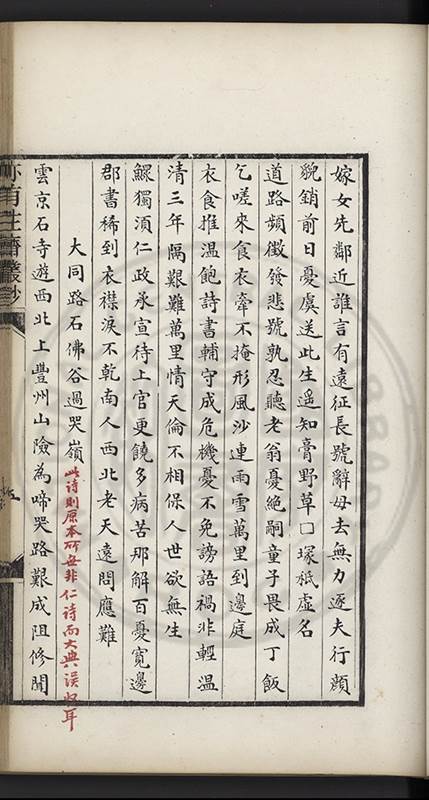 嫁女先鄰近誰言有遠征長號辭母去無力逐夫行顏
貌銷前日憂虞送此生遥知膏野草口塚衹虛名
道路頻徵發悲號孰忍聽老翁憂絕嗣童子畏成丁飯
乞嗟來食衣牽不掩形風沙連雨雪萬里到邊庭
衣食推温飽詩書輔守成危機憂不免謗語禍非輕温
清三年隔艱難萬里情天倫不相保人世欲無生
鰥獨須仁政承宣待上官更饒多病苦那解百憂寬邊
郡書稀到衣襟淚不乾南人西北老天遠問應難
大同路石佛谷過哭嶺此诗则原本所无非仁诗而大典误收耳
雲京石寺遊西北上豐州山險為啼哭路艱成阻修聞